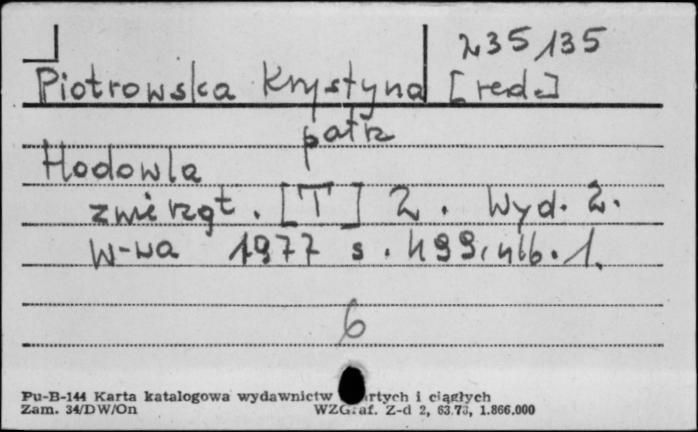 235135
Piotrowska Krystyna [red.]
patrz
Hodowla
zwierząt. [T] 2. Wyd. 2.
W-wa 1977 s. 499, nlb. 1.
6
Pu-B-144 Karta katalogowa wydawnictw i ciągłych
Zam. 34/DW/On WZGraf. Z-d 2, 1.866.000